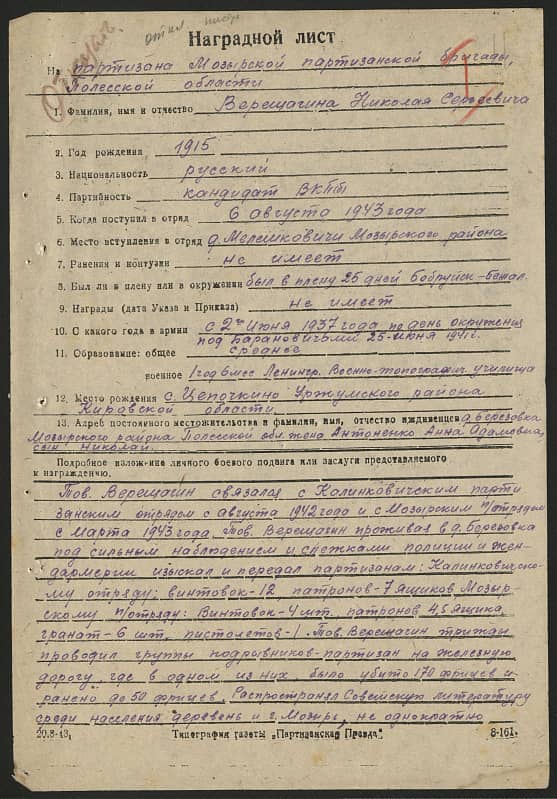 откл
Наградной лист
На партизана Мозырской партизанской бригады,
Полесской области
1. Фамилия, имя и отчество Верещагина Николая Сергеевича
2. Год рождения 1915
3. Национальность русский
4. Партийность кандидат ВКПб
5. Когда поступил в отряд 6 августа 1943 года
6. Место вступления в отряд д. Мелешковичи Мозырского района
7. Ранения и контузии не имеет
8. Был ли в плену или в окружении был в плену 25 дней Бобруйск-бежал.
9. Награды (дата Указа и Приказа) не имеет
10. С какого года в армии с 2го июня 1937 года по день окружения
под Барановичами 25-июня 1941г.
11. Образование: общее среднее
военное 1 год 6 мес Ленингр. Военно-топографич. училища
12. Место рождения с. Цепочкино Уржумского района
Кировской области
13. Адрес постоянного местожительства и фамилия, имя, отчество иждивенцев д. Березовка
Мозырского района Полесской обл. жена Антоненко Анна Адамовна,
сын Николай.
Подробное изложение личного боевого подвига или заслуги представляемого
к награждению.
Тов. Верещагин связался с Калинковичским парти
занским отрядом с августа 1942 года и с Мозырским п/отрядом
с марта 1943 года. Тов. Верещагин проживая в д. Березовка
под сильным наблюдением и слежками полиции и жен-
дармерии изыскал и передал партизанам: Калинковичско-
му отряду: винтовок-12 патронов-7 ящиков Мозыр-
скому п/отряду: Винтовок-4 шт. патронов 4,5 ящика,
гранат-6 шт. пистолетов-1. Тов. Верещагин трижды
проводил группы подрывников-партизан на железную
дорогу, где в одном из них, было убито 170 фрицев и
ранено до 50 фрицев. Распространял Советскую литературу
среди населения деревень и г. Мозырь, не однократно
20.8-43, Типография газеты „Партизанская Правда" 8-161.